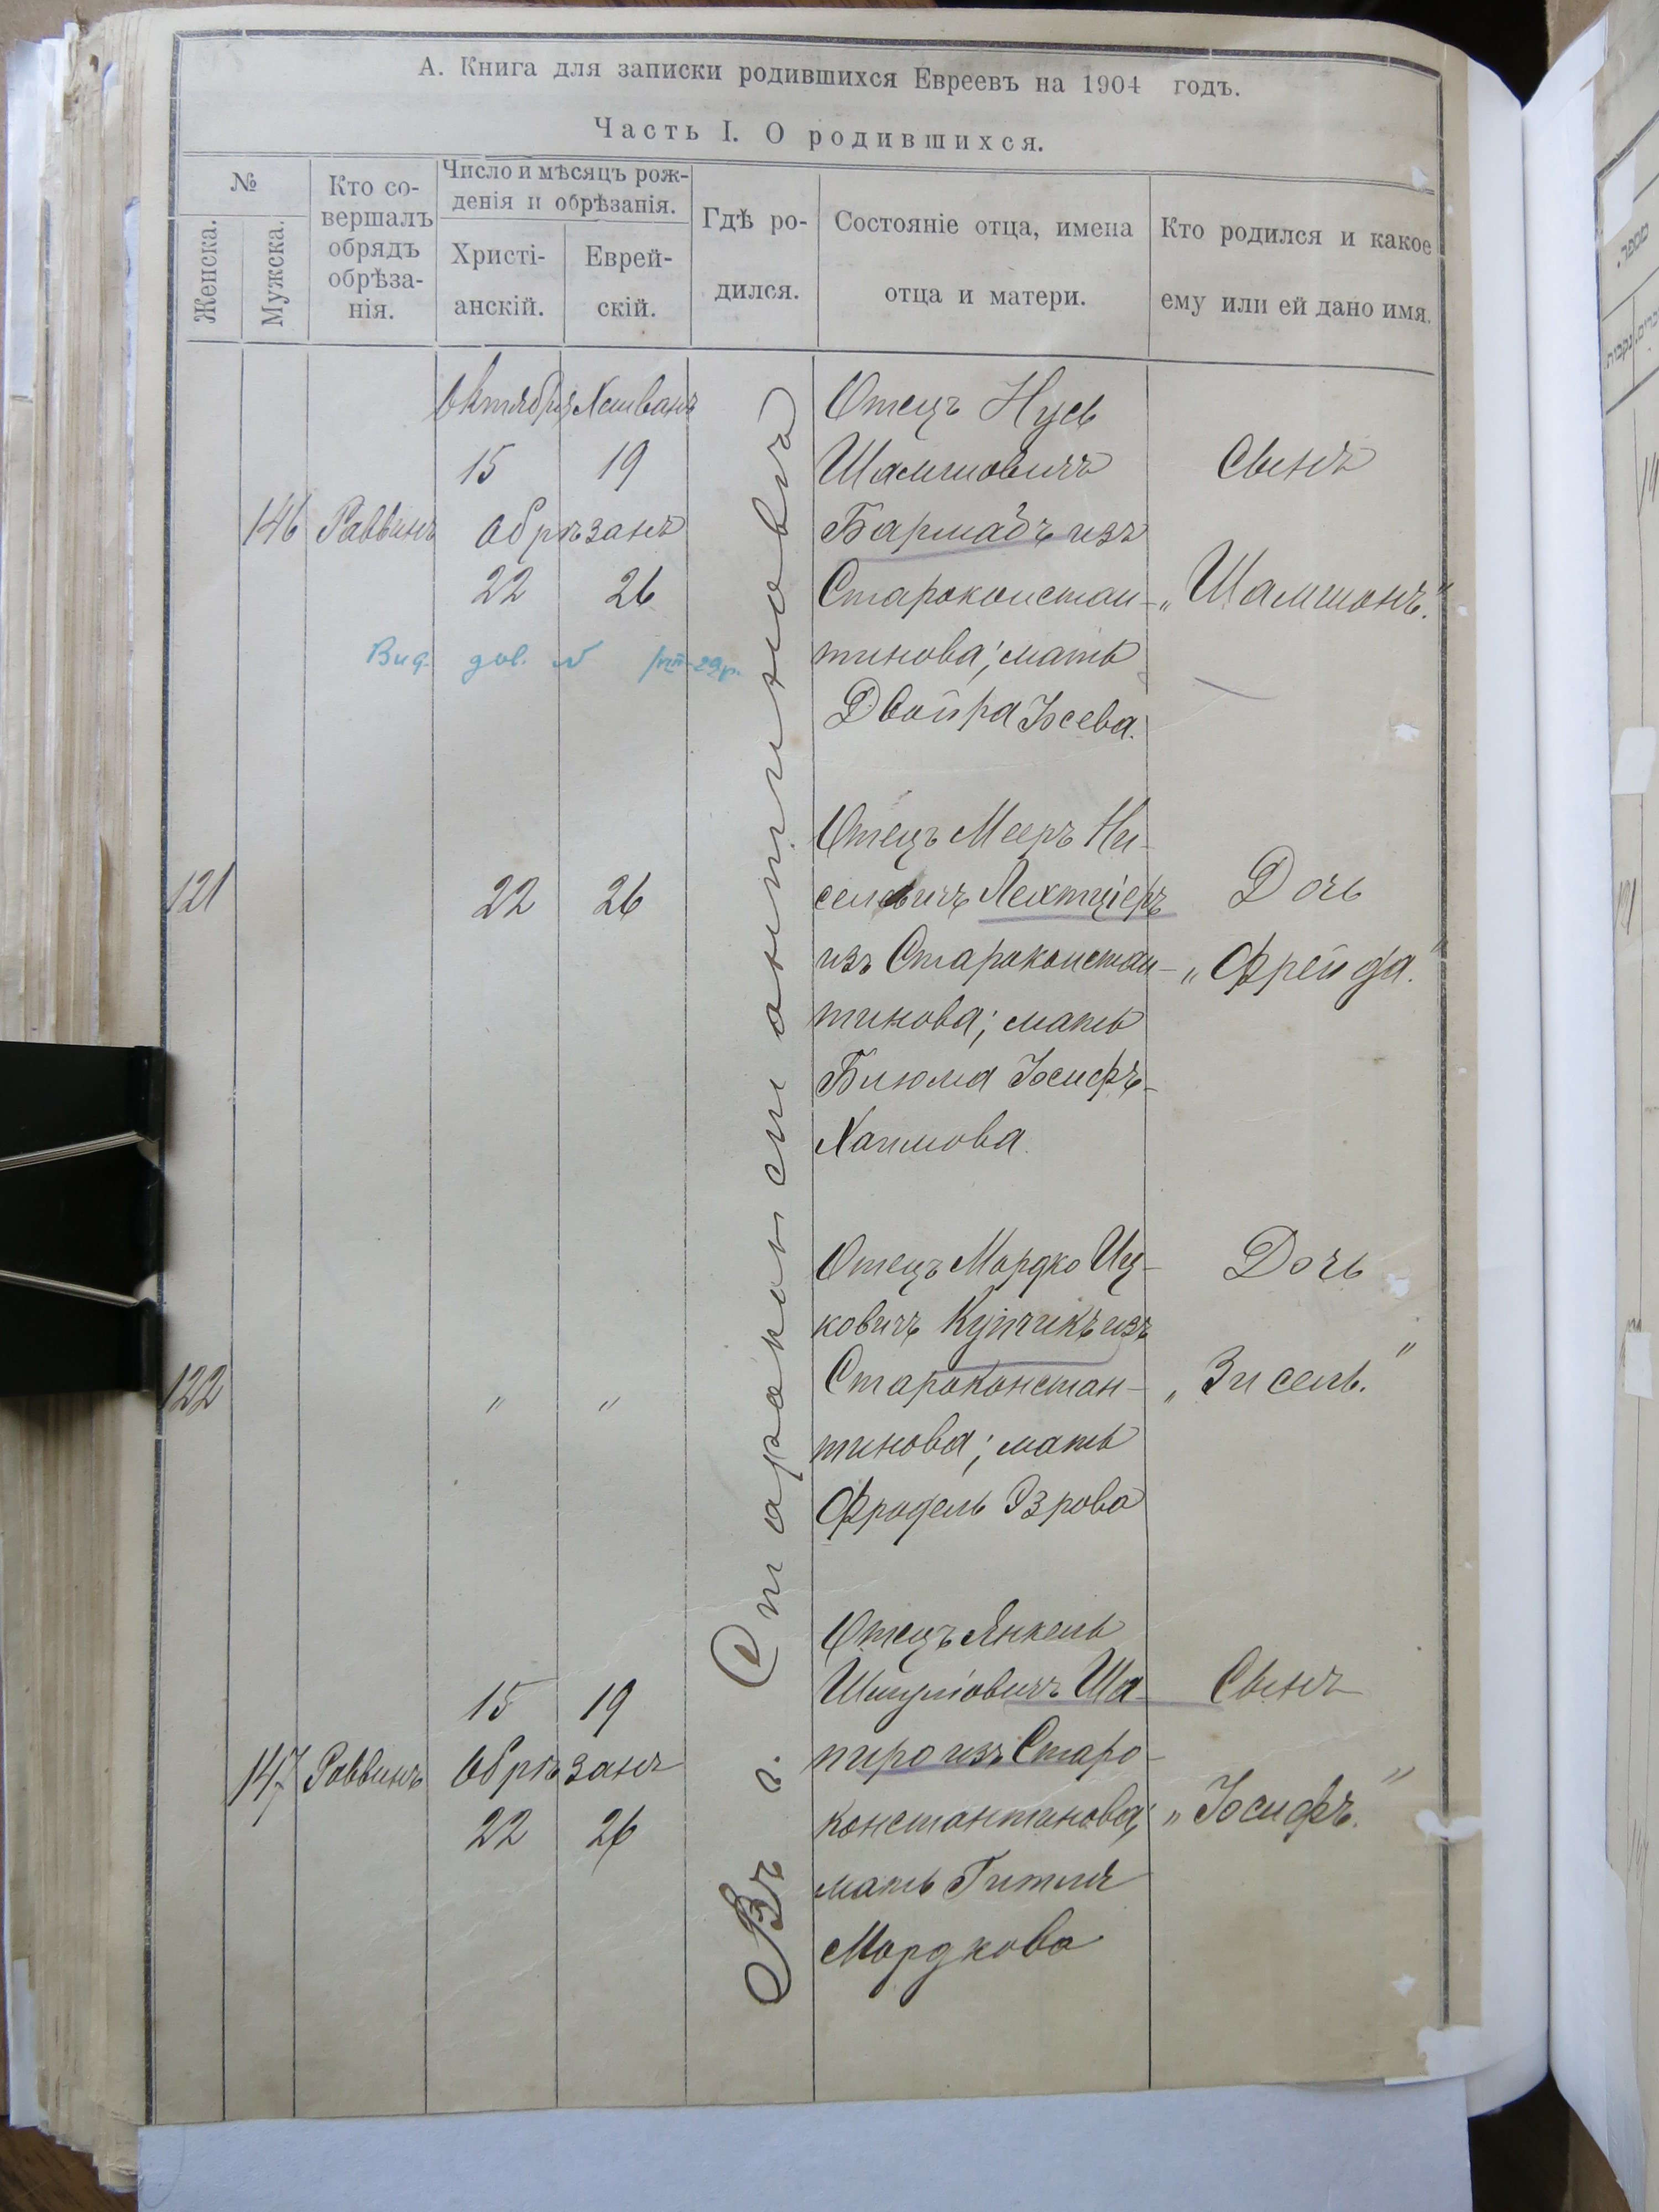 А. Книга для записки родившихся Евреевъ на 1904 годъ.
Часть I. О родившихся.
№
Женска.
Мужска.
Кто со-
вершалъ
обрядъ
обрѣза-
нія.
Число и мѣсяцъ рож-
денія и обрѣзанія.
Христі-
анскій.
Еврей-
скій.
Гдѣ ро-
дился.
Состояніе отца, имена
отца и матери.
Кто родился и какое
ему или ей дано имя.
Въ г. Староконстантиновѣ
Октября Хешванъ
15 19
146 Раввинъ Обрѣзанъ
22 26
Вид. дов. №
Отецъ Нусь
Шамшовичъ
Бармадъ изъ
Староконстан-
тинова; мать
Двойра Іосева.
Сынъ
„Шамшонъ."
121 22 26
Отецъ Мееръ Ни-
селевичъ Лехтціеръ
изъ Староконстан-
тинова; мать
Блюма Іосифъ-
Хаимова.
Дочь
„Фрейда."
122 " "
Отецъ Мордко Иц-
ковичъ Купчикъ изъ
Староконстан-
тинова; мать
Фрадель Эзрова
Дочь
„Зисель."
15 19
147 Раввинъ Обрѣзанъ
22 26
Отецъ Янкель
Шмулiовичъ Ша-
пиро изъ Старо-
константинова;
мать Гитля
Мордкова
Сынъ
„Іосифъ."